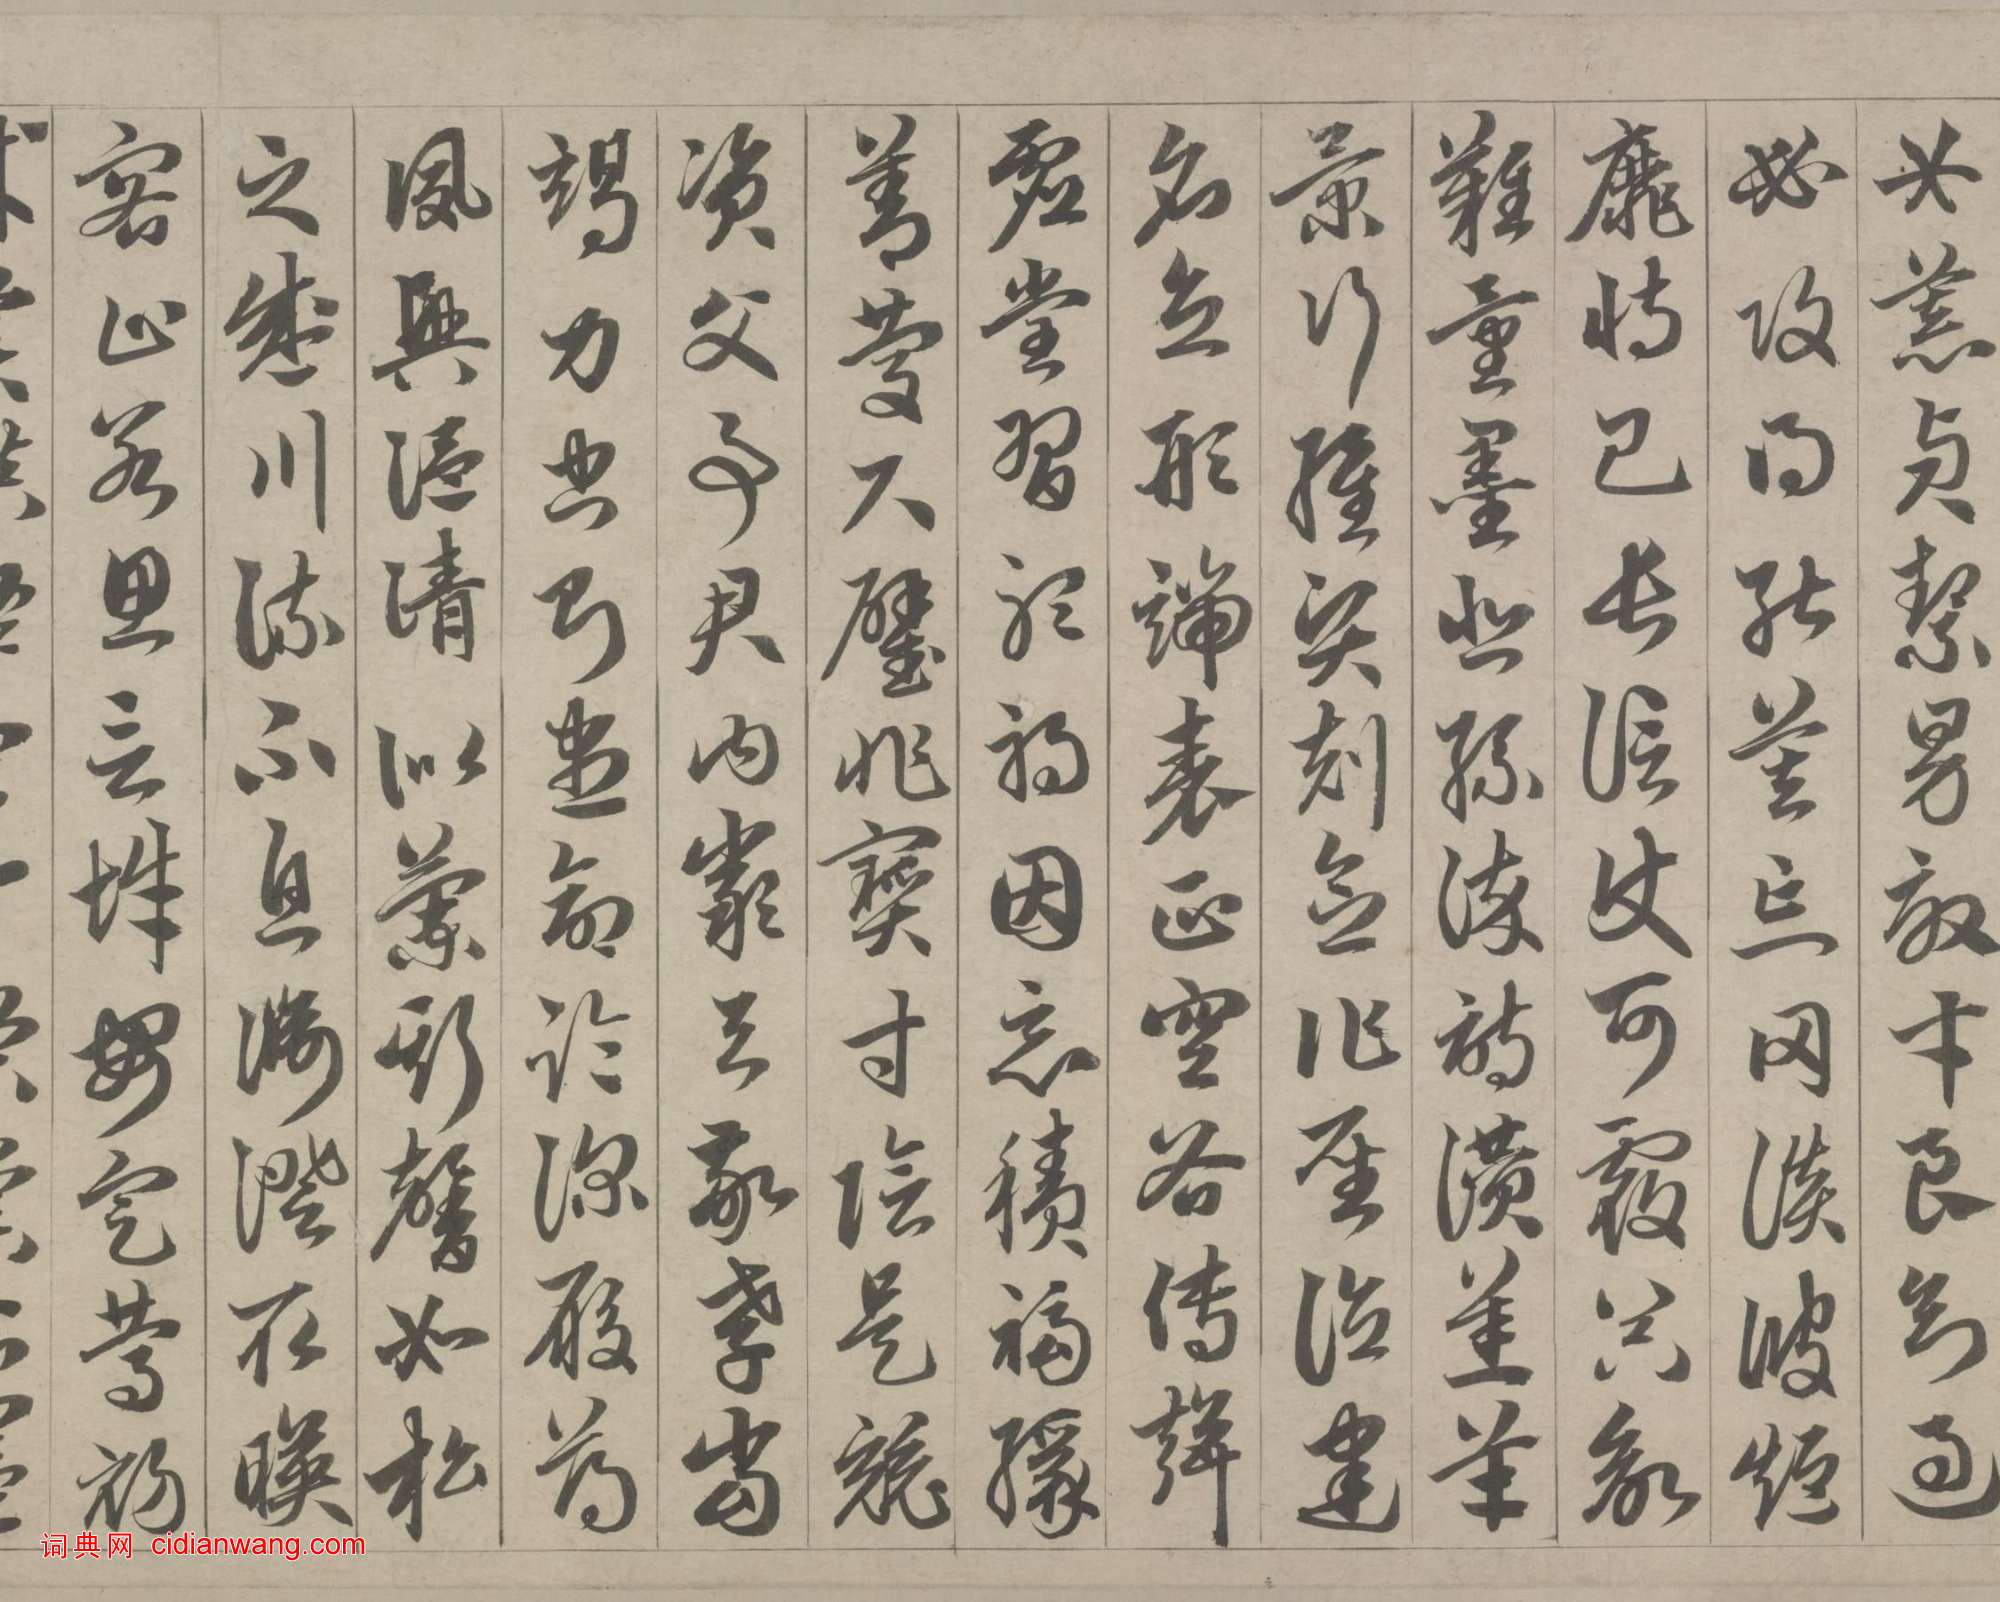 女慕貞絜男效才良知過
必改得能莫忘罔談彼短
靡恃己長信使可覆器欲
難量墨悲絲染詩讚羔羊
景行維賢剋念作聖德建
名立形端表正空谷傳聲
虛堂習聽禍因惡積福緣
善慶尺璧非寶寸陰是競
資父事君曰嚴與敬孝當
竭力忠則盡命臨深履薄
夙興溫清似蘭斯馨如松
之盛川流不息淵澄取暎
容止若思言辭安定篤初
词典网 cidianwang.com